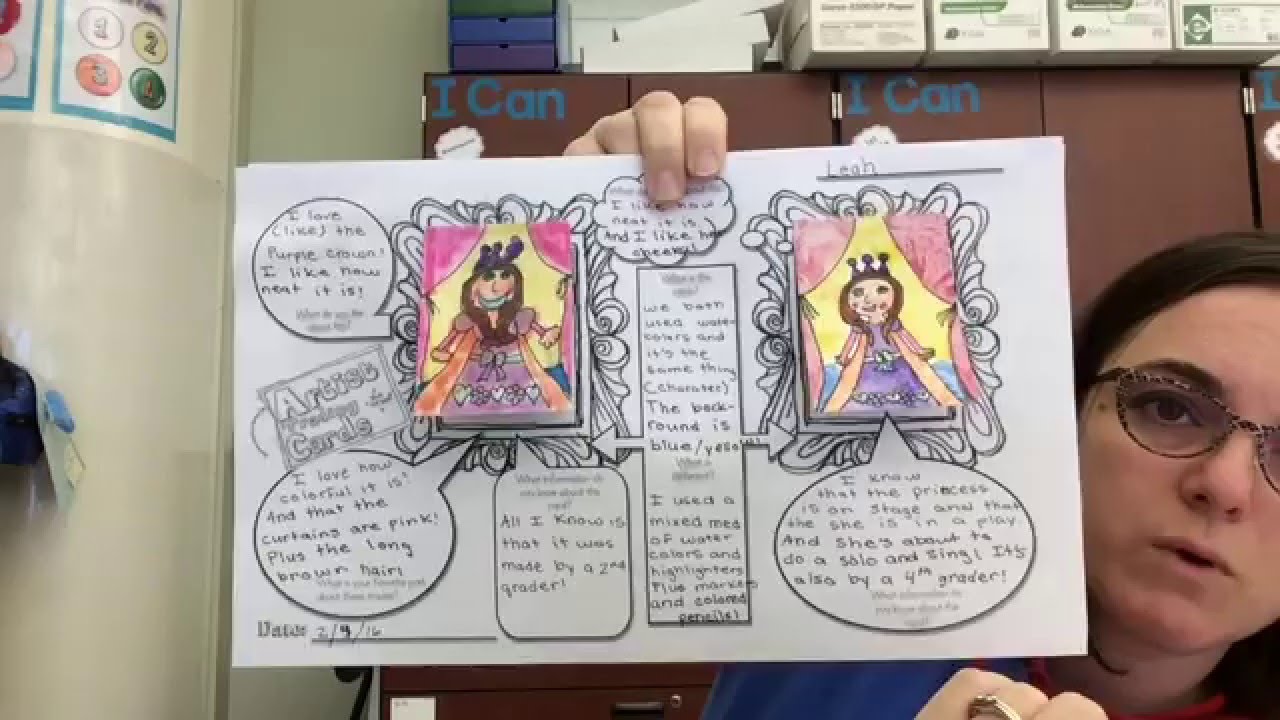 1
2
3
4
I Can
I Can
I
Leah
I love
(like) the
Purple crown!
I like how
neat it is!
What do you like
about this?
I like how
neat it is
And I like her
cheeks!
What is the
same?
we both
used water-
colors and
it's the
same thing
(charater)
The back-
round is
blue/yellow
What is
different?
I used a
mixed med
of water
colors and
highlighters
Plus markers
and colored
pencils!
Artist
Trading
Cards
I love how
colorful it is!
And that the
curtains are pink!
Plus the long
brown hair!
What is your favorite part
about these trades?
What information do
you know about this
All I know is
that it was
made by a 2nd
grader!
I know
that the princess
is on stage and that
the she is in a play
And she's about to
do a solo and sing! It's
also by a 4th grader!
What information do
you know about this
Date: 2/9/16